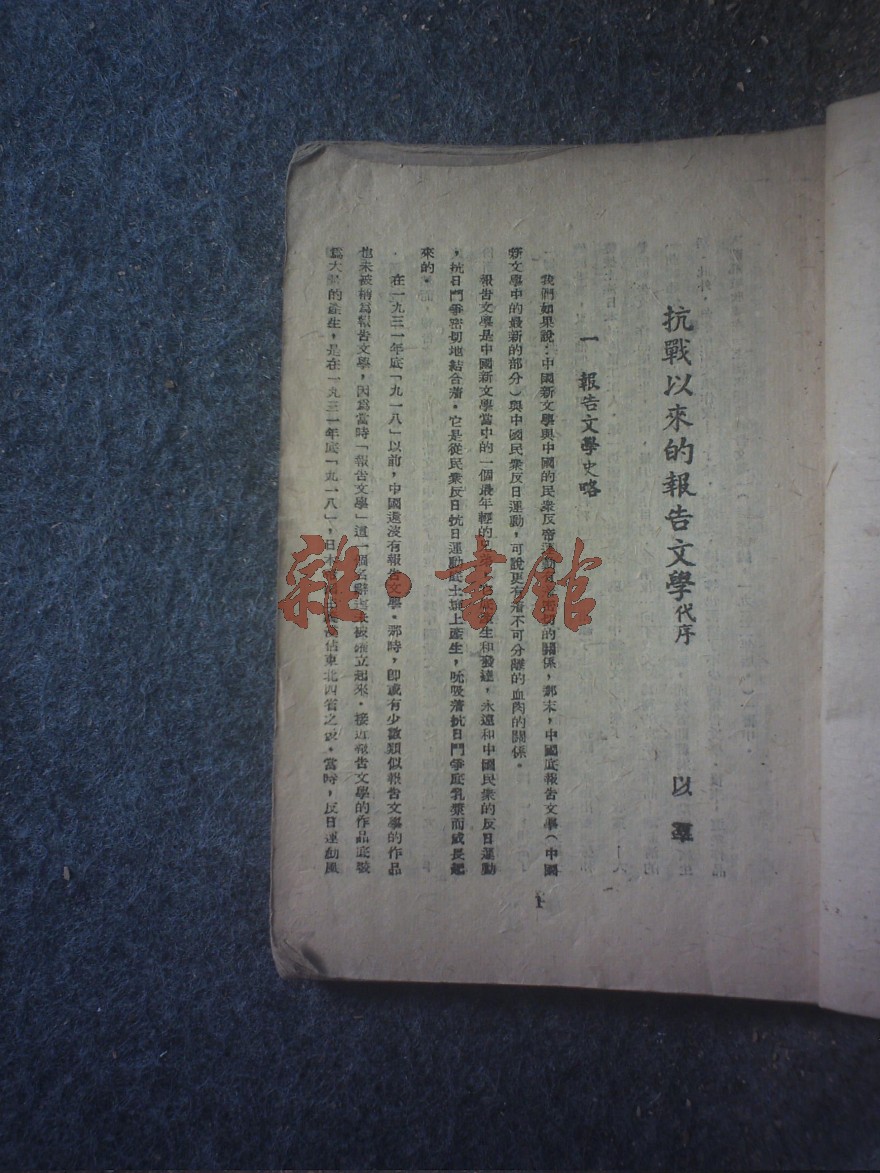 抗戰以來的報告文學代序
以羣
一 報告文學史略
我們如果說：中國新文學與中國的民衆反帝運動有着密切的關係，那末，中國底報告文學（中國
新文學中的最新的部分）與中國民衆反日運動，可說更有着不可分離的血肉的關係。
報告文學是中國新文學當中的一個最年輕的兄弟，產生和發達，永遠和中國民衆的反日運動
，抗日鬥爭密切地結合着。它是從民衆反日抗日運動底土壤上產生，吮吸着抗日鬥爭底乳漿而成長起
來的。
在一九三一年底「九一八」以前，中國還沒有報告文學。那時，卽或有少數類似報告文學的作品
也未被稱爲報告文學，因爲當時「報告文學」這一個名辭還未被確立起來。接近報告文學的作品底最
爲大量的產生，是在一九三一年底「九一八」，日本佔東北四省之後。當時，反日運動風
1
雜·書館